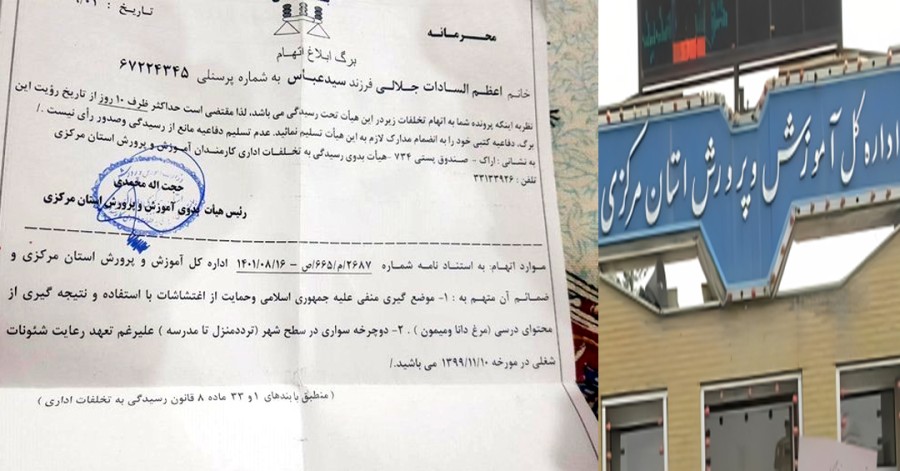 تاریخ :
محرمانه
برگ ابلاغ اتهام
خانم اعظم السادات جلالی فرزند سیدعباس به شماره پرسنلی ۶۷۲۲۴۳۴۵
نظربه اینکه پرونده شما به اتهام تخلفات زیردر این هیأت تحت رسیدگی می باشد، لذا مقتضی است حداکثر ظرف ۱۰ روز از تاریخ رؤیت این
برگ، دفاعیه کتبی خود را به انضمام مدارک لازم به این هیأت تسلیم نمائید. عدم تسلیم دفاعیه مانع از رسیدگی وصدور رأی نیست ./
به نشانی : اراک - صندوق پستی ۷۳۴ -هیأت بدوی رسیدگی به تخلفات اداری کارمندان آموزش و پرورش استان مرکزی
تلفن : ۳۳۱۳۳۹۲۶
حجت اله محمدی
رئیس هیأت بدوی آموزش و پرورش استان مرکزی
موارد اتهام: به استناد نامه شماره ۲۶۸۷/م/۶۶۵/ص - ۱۴۰۱/۰۸/۱۶ اداره کل آموزش و پرورش استان مرکزی و
ضمائم آن متهم به : ۱- موضع گیری منفی علیه جمهوری اسلامی وحمایت از اغتشاشات با استفاده و نتیجه گیری از
محتوای درسی (مرغ دانا ومیمون ) . ۲- دوچرخه سواری در سطح شهر (ترددمنزل تا مدرسه ) علیرغم تعهد رعایت شئونات
شغلی در مورخه ۱۳۹۹/۱۱/۱۰ می باشید./
( منطبق با بندهای ۱ و ۳۳ ماده ۸ قانون رسیدگی به تخلفات اداری )
اداره کل آموزش و پرورش استان مرکزی